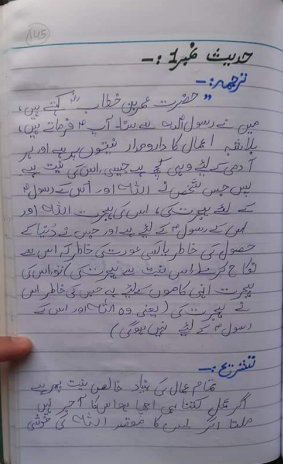 145
حدیث نمبر 1:-
ترجمہ:-
" حضرت عمر بن خطاب رض کہتے ہیں،
میں نے رسول اللہ ﷺ سے سنا۔ آپ ﷺ فرماتے ہیں،
بلاشبہ اعمال کا دارومدار نیتوں پر ہے اور ہر
آدمی کے لئے وہی کچھ ہے جیسی اس کی نیت ہے
پس جس شخص نے اللہ اور اس کے رسول ﷺ
کے لئے ہجرت کی، اس کی ہجرت اللہ اور
اس کے رسول ﷺ کے لئے ہے اور جس نے دنیا کے
حصول کی خاطر یا کسی عورت کی خاطر کہ اس سے
نکاح کرے اس نیت سے ہجرت کی تو اس کی
ہجرت انہی کاموں کے لئے ہے جس کی خاطر اس
نے ہجرت کی (یعنی وہ اللہ اور اس کے
رسول ﷺ کے لئے نہیں ہوگی)
تشریح:-
تمام اعمال کی بنیاد خالص نیت پر ہے
اگر عمل کتنا ہی اچھا ہو اس کا اجر نہیں
ملتا اگر اس کا مقصد اللہ کی خوشی